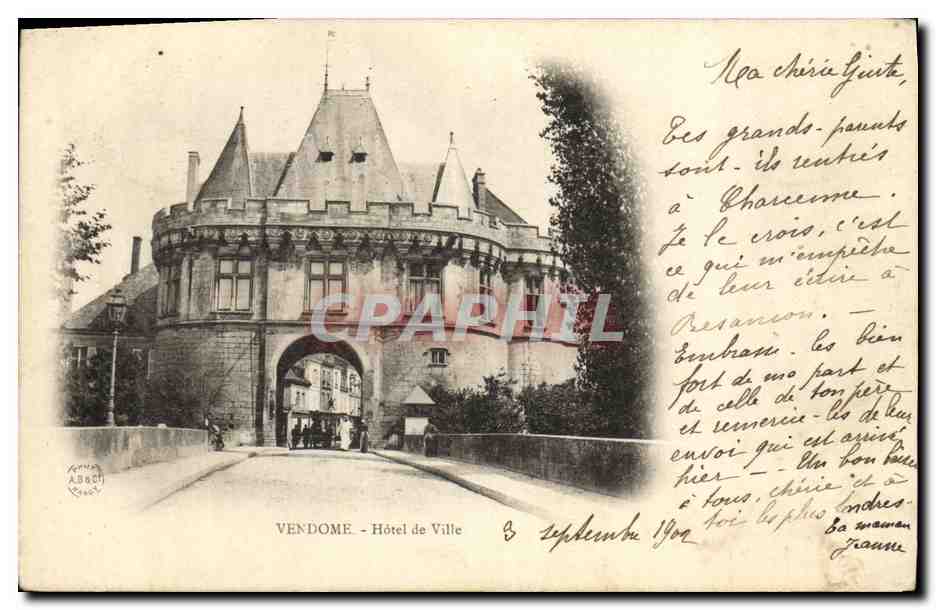 Ma chérie Ginte,
Tes grands-parents
sont-ils rentrés
à Charcenne.
Je le crois, c'est
ce qui m'empêche
de leur écrire à
Besançon. —
Embrasse-les bien
fort de ma part et
de celle de ton père
et remercie-les de leur
envoi qui est arrivé
hier — Un bon baiser
à tous, chérie et à
toi les plus tendres.
Ta maman
Jeanne
CPAPHIL
A.B & Cie
NANCY
VENDOME. - Hôtel de Ville
3 septembre 1902